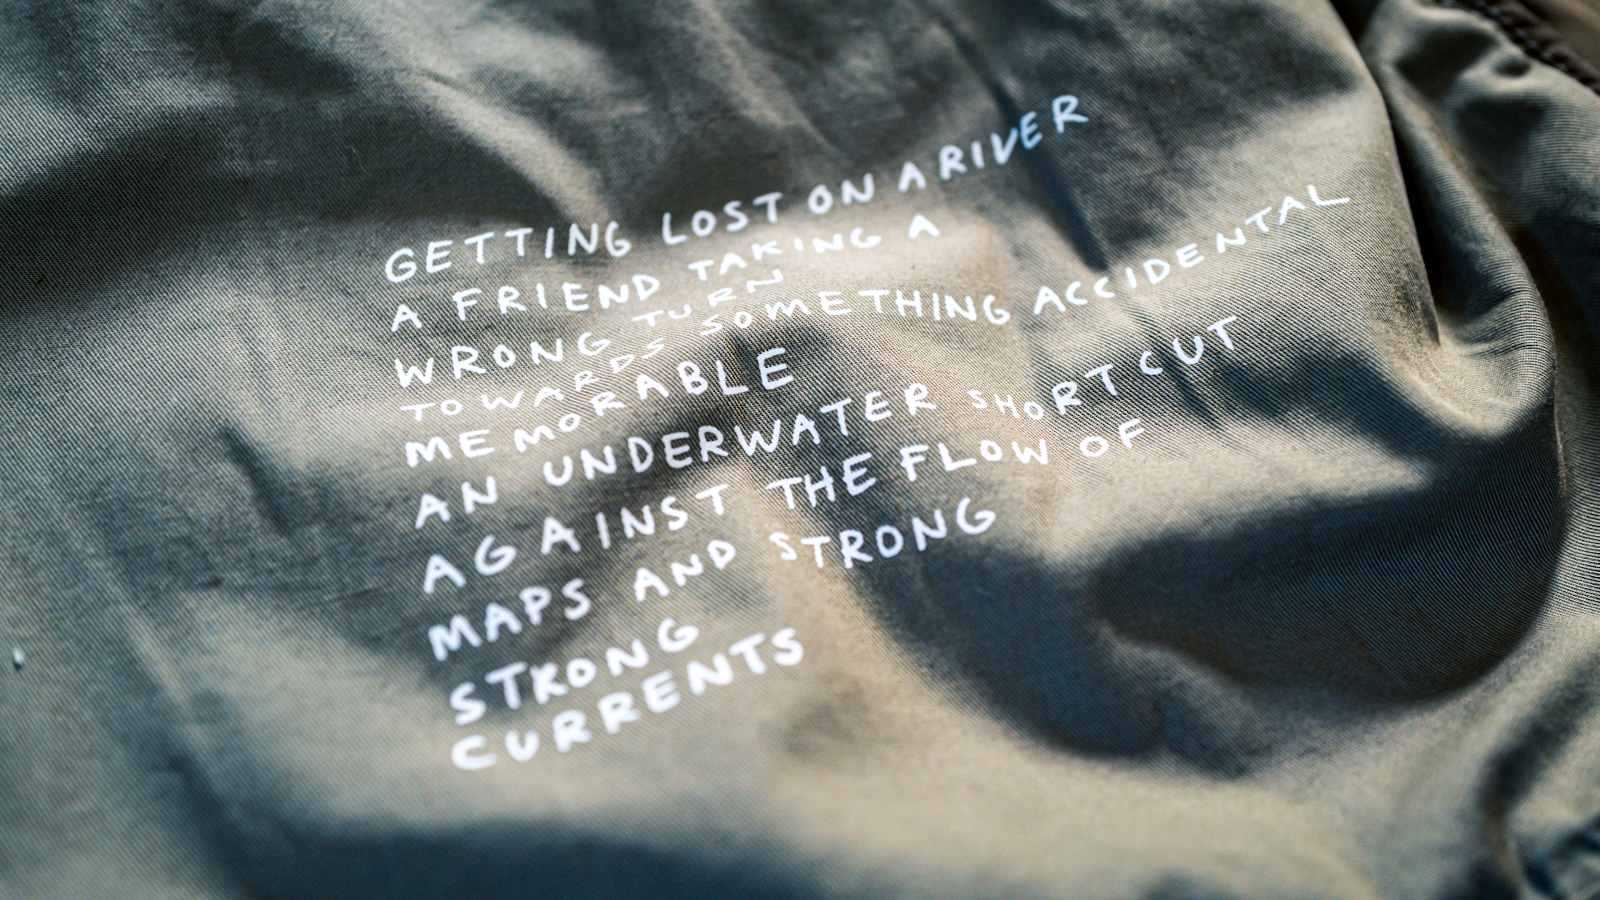 GETTING LOST ON A RIVER
A FRIEND TAKING A
WRONG TURN
TOWARDS SOMETHING ACCIDENTAL
MEMORABLE
AN UNDERWATER SHORTCUT
AGAINST THE FLOW OF
MAPS AND STRONG
STRONG
CURRENTS